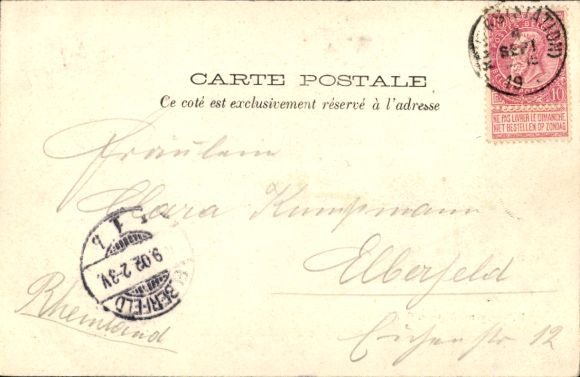 (STATION)
4
SEPT
19
10
NE PAS LIVRER LE DIMANCHE
NIET BESTELLEN OP ZONDAG
CARTE POSTALE
Ce coté est exclusivement réservé à l'adresse
Fräulein
Clara
Elberfeld
12
Rheinland
9.02 2-3V.
BERFELD